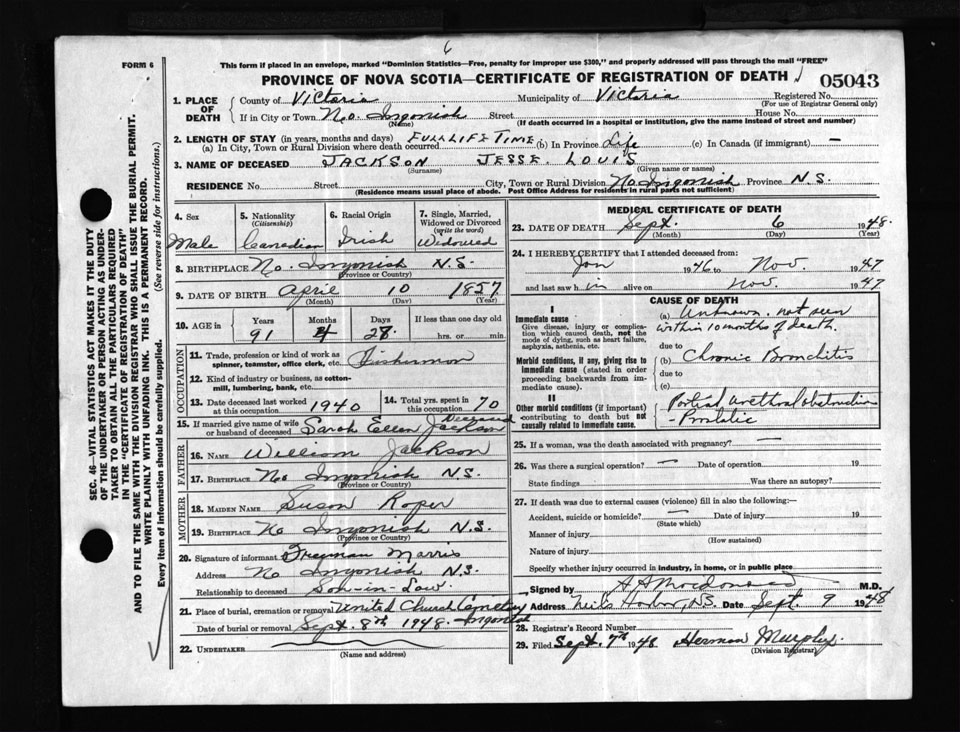 6
FORM 6
This form if placed in an envelope, marked "Dominion Statistics—Free, penalty for improper use $300," and properly addressed will pass through the mail "FREE"
PROVINCE OF NOVA SCOTIA—CERTIFICATE OF REGISTRATION OF DEATH
05043
1. PLACE OF DEATH
County of Victoria Municipality of Victoria Registered No.
(For use of Registrar General only)
If in City or Town No. Ingonish Street House No.
(Name) (If death occurred in a hospital or institution, give the name instead of street and number)
2. LENGTH OF STAY (in years, months and days) FULL LIFE TIME
(a) In City, Town or Rural Division where death occurred (b) In Province Life (c) In Canada (if immigrant) —
3. NAME OF DECEASED JACKSON JESSE. LOUIS
(Surname) (Given name or names)
RESIDENCE No. Street City, Town or Rural Division No. Ingonish Province N.S.
(Residence means usual place of abode. Post Office Address for residents in rural parts not sufficient)
4. Sex Male
5. Nationality (Citizenship) Canadian
6. Racial Origin Irish
7. Single, Married, Widowed or Divorced (write the word) Widowed
8. BIRTHPLACE No. Ingonish N.S.
(Province or Country)
9. DATE OF BIRTH April 10 1857
(Month) (Day) (Year)
10. AGE in Years 91 Months 4 Days 28 If less than one day old
hrs. or min.
OCCUPATION
11. Trade, profession or kind of work as spinner, teamster, office clerk, etc. Fisherman
12. Kind of industry or business, as cotton-mill, lumbering, bank, etc.
13. Date deceased last worked at this occupation 1940
14. Total yrs. spent in this occupation 70
15. If married give name of wife or husband of deceased Sarah Ellen Jackson Deceased
FATHER
16. NAME William Jackson
17. BIRTHPLACE No Ingonish N.S.
(Province or Country)
MOTHER
18. MAIDEN NAME Susan Roper
19. BIRTHPLACE No Ingonish N.S.
(Province or Country)
20. Signature of informant Freeman Marris
Address No Ingonish N.S.
Relationship to deceased Son-in-Law
21. Place of burial, cremation or removal United Church Cemetery Ingonish
Date of burial or removal Sept. 8th 1948.
22. UNDERTAKER
(Name and address)
MEDICAL CERTIFICATE OF DEATH
23. DATE OF DEATH Sept. 6 1948.
(Month) (Day) (Year)
24. I HEREBY CERTIFY that I attended deceased from
Jan 1946 to Nov. 1947
and last saw him alive on Nov. 1947
CAUSE OF DEATH
I
Immediate cause
Give disease, injury or complication which caused death, not the mode of dying, such as heart failure, asphyxia, asthenia, etc.
(a) Unknown. not seen within 10 months of death.
due to
Morbid conditions, if any, giving rise to immediate cause (stated in order proceeding backwards from immediate cause).
(b) Chronic Bronchitis
due to
(c)
II
Other morbid conditions (if important) contributing to death but not causally related to immediate cause.
Partial Urethral obstruction
- Prostatic
25. If a woman, was the death associated with pregnancy? —
26. Was there a surgical operation? — Date of operation 19
State findings Was there an autopsy?
27. If death was due to external causes (violence) fill in also the following:—
Accident, suicide or homicide? — Date of injury 19
(State which)
Manner of injury
(How sustained)
Nature of injury
Specify whether injury occurred in industry, in home, or in public place
Signed by A A Macdonald M.D.
Address Neils Harbor, N.S. Date Sept. 9 1948
28. Registrar's Record Number
29. Filed Sept. 7th 1948 Herman Murphy.
(Division Registrar)
SEC. 46—VITAL STATISTICS ACT MAKES IT THE DUTY
OF THE UNDERTAKER OR PERSON ACTING AS UNDER-
TAKER TO OBTAIN ALL THE PARTICULARS REQUIRED
IN THE "CERTIFICATE OF REGISTRATION OF DEATH"
AND TO FILE THE SAME WITH THE DIVISION REGISTRAR WHO SHALL ISSUE THE BURIAL PERMIT.
WRITE PLAINLY WITH UNFADING INK. THIS IS A PERMANENT RECORD.
Every item of information should be carefully supplied. (See reverse side for instructions.)